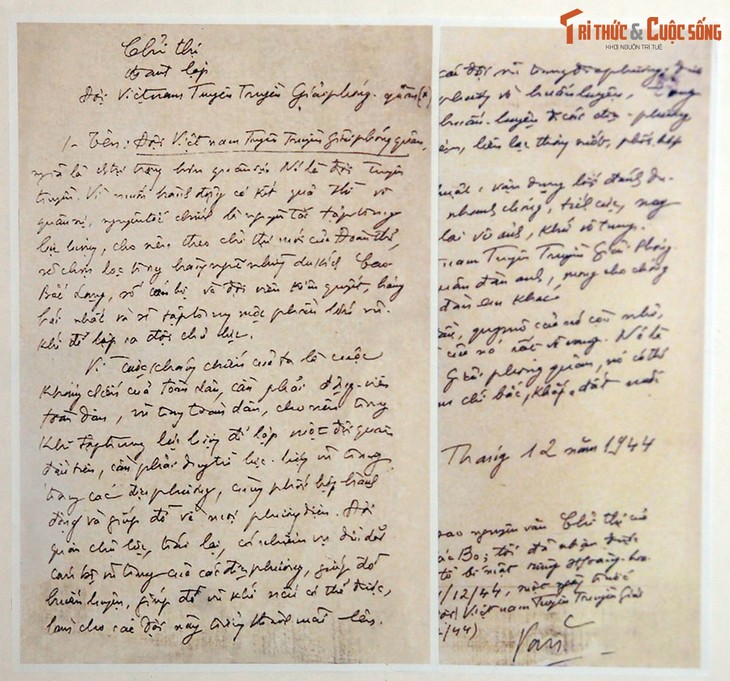 TRI THỨC & CUỘC SỐNG
KHƠI NGUỒN TRI TUỆ
Chỉ thị
thành lập
Đội Việt nam Tuyên Truyền Giải phóng quân (*)
1- Tên: Đội Việt nam Tuyên Truyền Giải phóng quân,
nghĩa là chính trị trọng hơn quân sự. Nó là đội tuyên
truyền. Vì muốn hành động có kết quả thì về
quân sự, nguyên tắc chính là nguyên tắc tập trung
lực lượng, cho nên, theo chỉ thị mới của Đoàn thể,
sẽ chọn lọc trong hàng ngũ những du kích Cao
Bắc Lạng, số cán bộ và đội viên kiên quyết, hăng
hái nhất và sẽ tập trung một phần lớn vũ
khí để lập ra đội chủ lực.
Vì cuộc kháng chiến của ta là cuộc
kháng chiến của toàn dân, cần phải động viên
toàn dân, vũ trang toàn dân, cho nên trong
khi tập trung lực lượng để lập một đội quân
đầu tiên, cần phải duy trì lực lượng vũ trang
trong các địa phương, cùng phối hợp hành
động và giúp đỡ về mọi phương diện. Đội
quân chủ lực, trái lại, có nhiệm vụ dìu dắt
cán bộ vũ trang của các địa phương, giúp đỡ
huấn luyện, giúp đỡ vũ khí nếu có thể được,
làm cho các đội này trưởng thành mãi lên.
các đội vũ trang địa phương,
huấn luyện,
huấn luyện đi các địa phương
liên lạc thông suốt, phối hợp
thuật, vận dụng lối đánh du
nhanh chóng, tích cực, nay
lai vô ảnh, khứ vô tung.
nam Tuyên Truyền Giải Phóng
quân đàn anh, mong cho chóng
đàn em khác.
quy mô của nó còn nhỏ,
của nó rất vẻ vang. Nó là
Giải phóng quân, nó có thể
chí bắc, khắp đất nước
Tháng 12 năm 1944
sao nguyên văn Chỉ thị của
ác Bo; tôi đã nhận được
bí mật rừng Hoàng hoa
/12/44, một ngày trước
Đội Việt nam Tuyên Truyền Giải
/44)
Văn